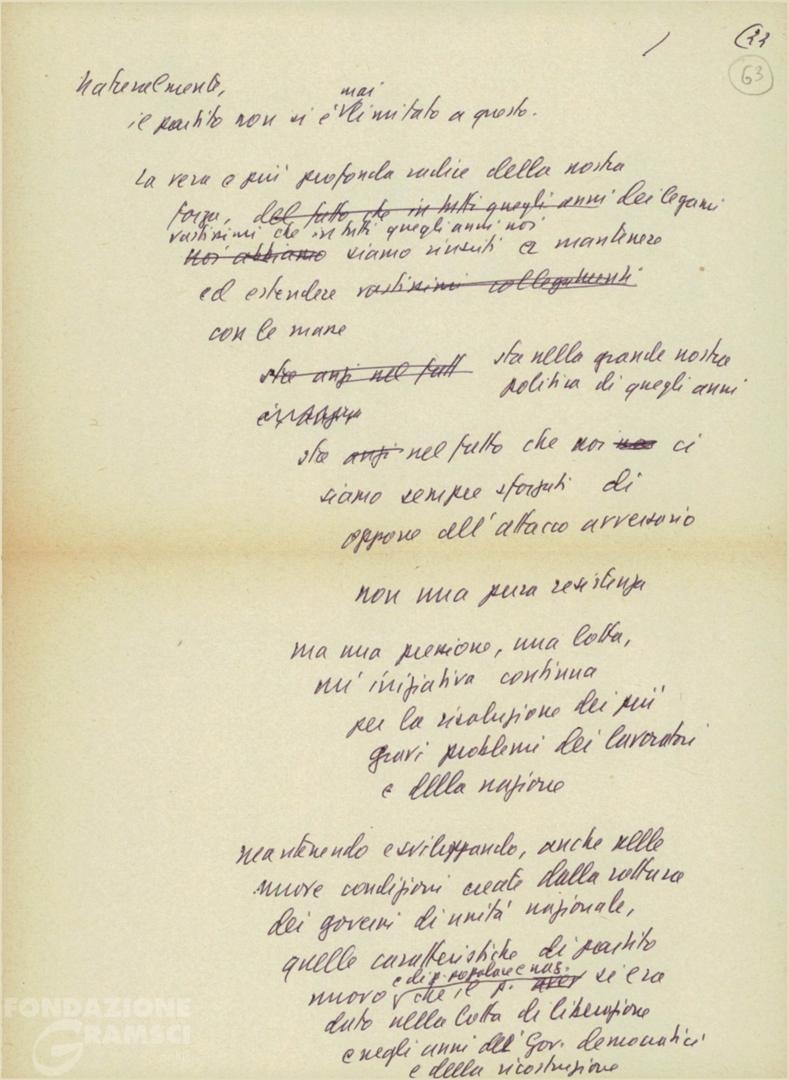 / 22
63
Naturalmente,
mai
il partito non si è limitato a questo.
La vera e più profonda radice della nostra
forza, del fatto che in tutti quegli anni dei legami
vastissimi che in tutti quegli anni noi
noi abbiamo siamo riusciti a mantenere
ed estendere vastissimi collegamenti
con le masse
sta anzi nel fatt sta nella grande nostra
politica di quegli anni
sta anzi nel fatto che noi ci
siamo sempre sforzati di
opporre all'attacco avversario
non una pura resistenza
ma una pressione, una lotta,
un'iniziativa continua
per la risoluzione dei più
gravi problemi dei lavoratori
e della nazione
mantenendo e sviluppando, anche nelle
nuove condizioni create dalla rottura
dei governi di unità nazionale,
quelle caratteristiche di partito
e di p. popolare e naz.
nuovo che il p. aver si era
dato nella lotta di liberazione
e negli anni dei Gov. democratici
e della ricostruzione
FONDAZIONE
GRAMSCI